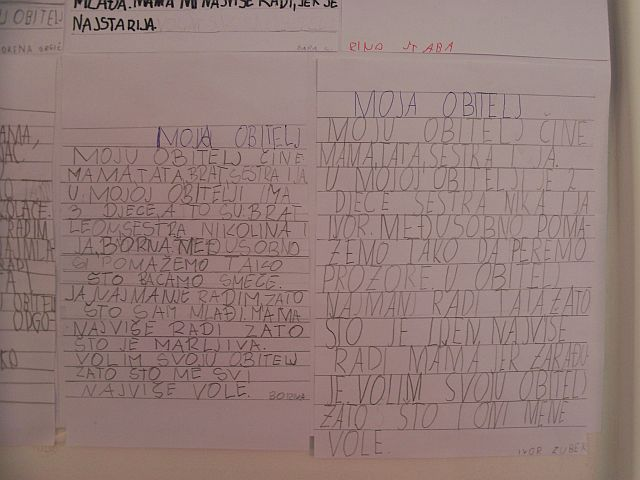 U OBITELJ
MLAĐA. MAMA MI NAJVIŠE RADI, JER JE
NAJSTARIJA.
RINO ŠTABA
AMA,
RADIM
U OBITELJ
ODGO-
KO
MOJA OBITELJ
MOJU OBITELJ ČINE
MAMA, TATA, BRAT, SESTRA I JA
U MOJOJ OBITELJI IMA
3 DJECE, A TO SU: BRAT
LEON, SESTRA NIKOLINA I
JA, BORNA. MEĐUSOBNO
SI POMAŽEMO TAKO
ŠTO BACAMO SMEĆE.
JA NAJMANJE RADIM, ZATO
ŠTO SAM MLAĐI. MAMA
NAJVIŠE RADI ZATO
ŠTO JE MARLJIVA.
VOLIM SVOJU OBITELJ
ZATO ŠTO ME SVI
NAJVIŠE VOLE. BORNA
MOJA OBITELJ
MOJU OBITELJ ČINE
MAMA, TATA, SESTRA I JA.
U MOJOJ OBITELJI JE 2
DJECE SESTRA NIKA I JA
IVOR. MEĐUSOBNO POMA-
ŽEMO TAKO DA PEREMO
PROZORE. U OBITELJI
NAJMANJ RADI TATA, ZATO
ŠTO JE LIJEN. NAJVIŠE
RADI MAMA JER ZARAĐU
JE. VOLIM SVOJU OBITELJ
ZATO ŠTO I ONI MENE
VOLE. IVOR ZUBEK